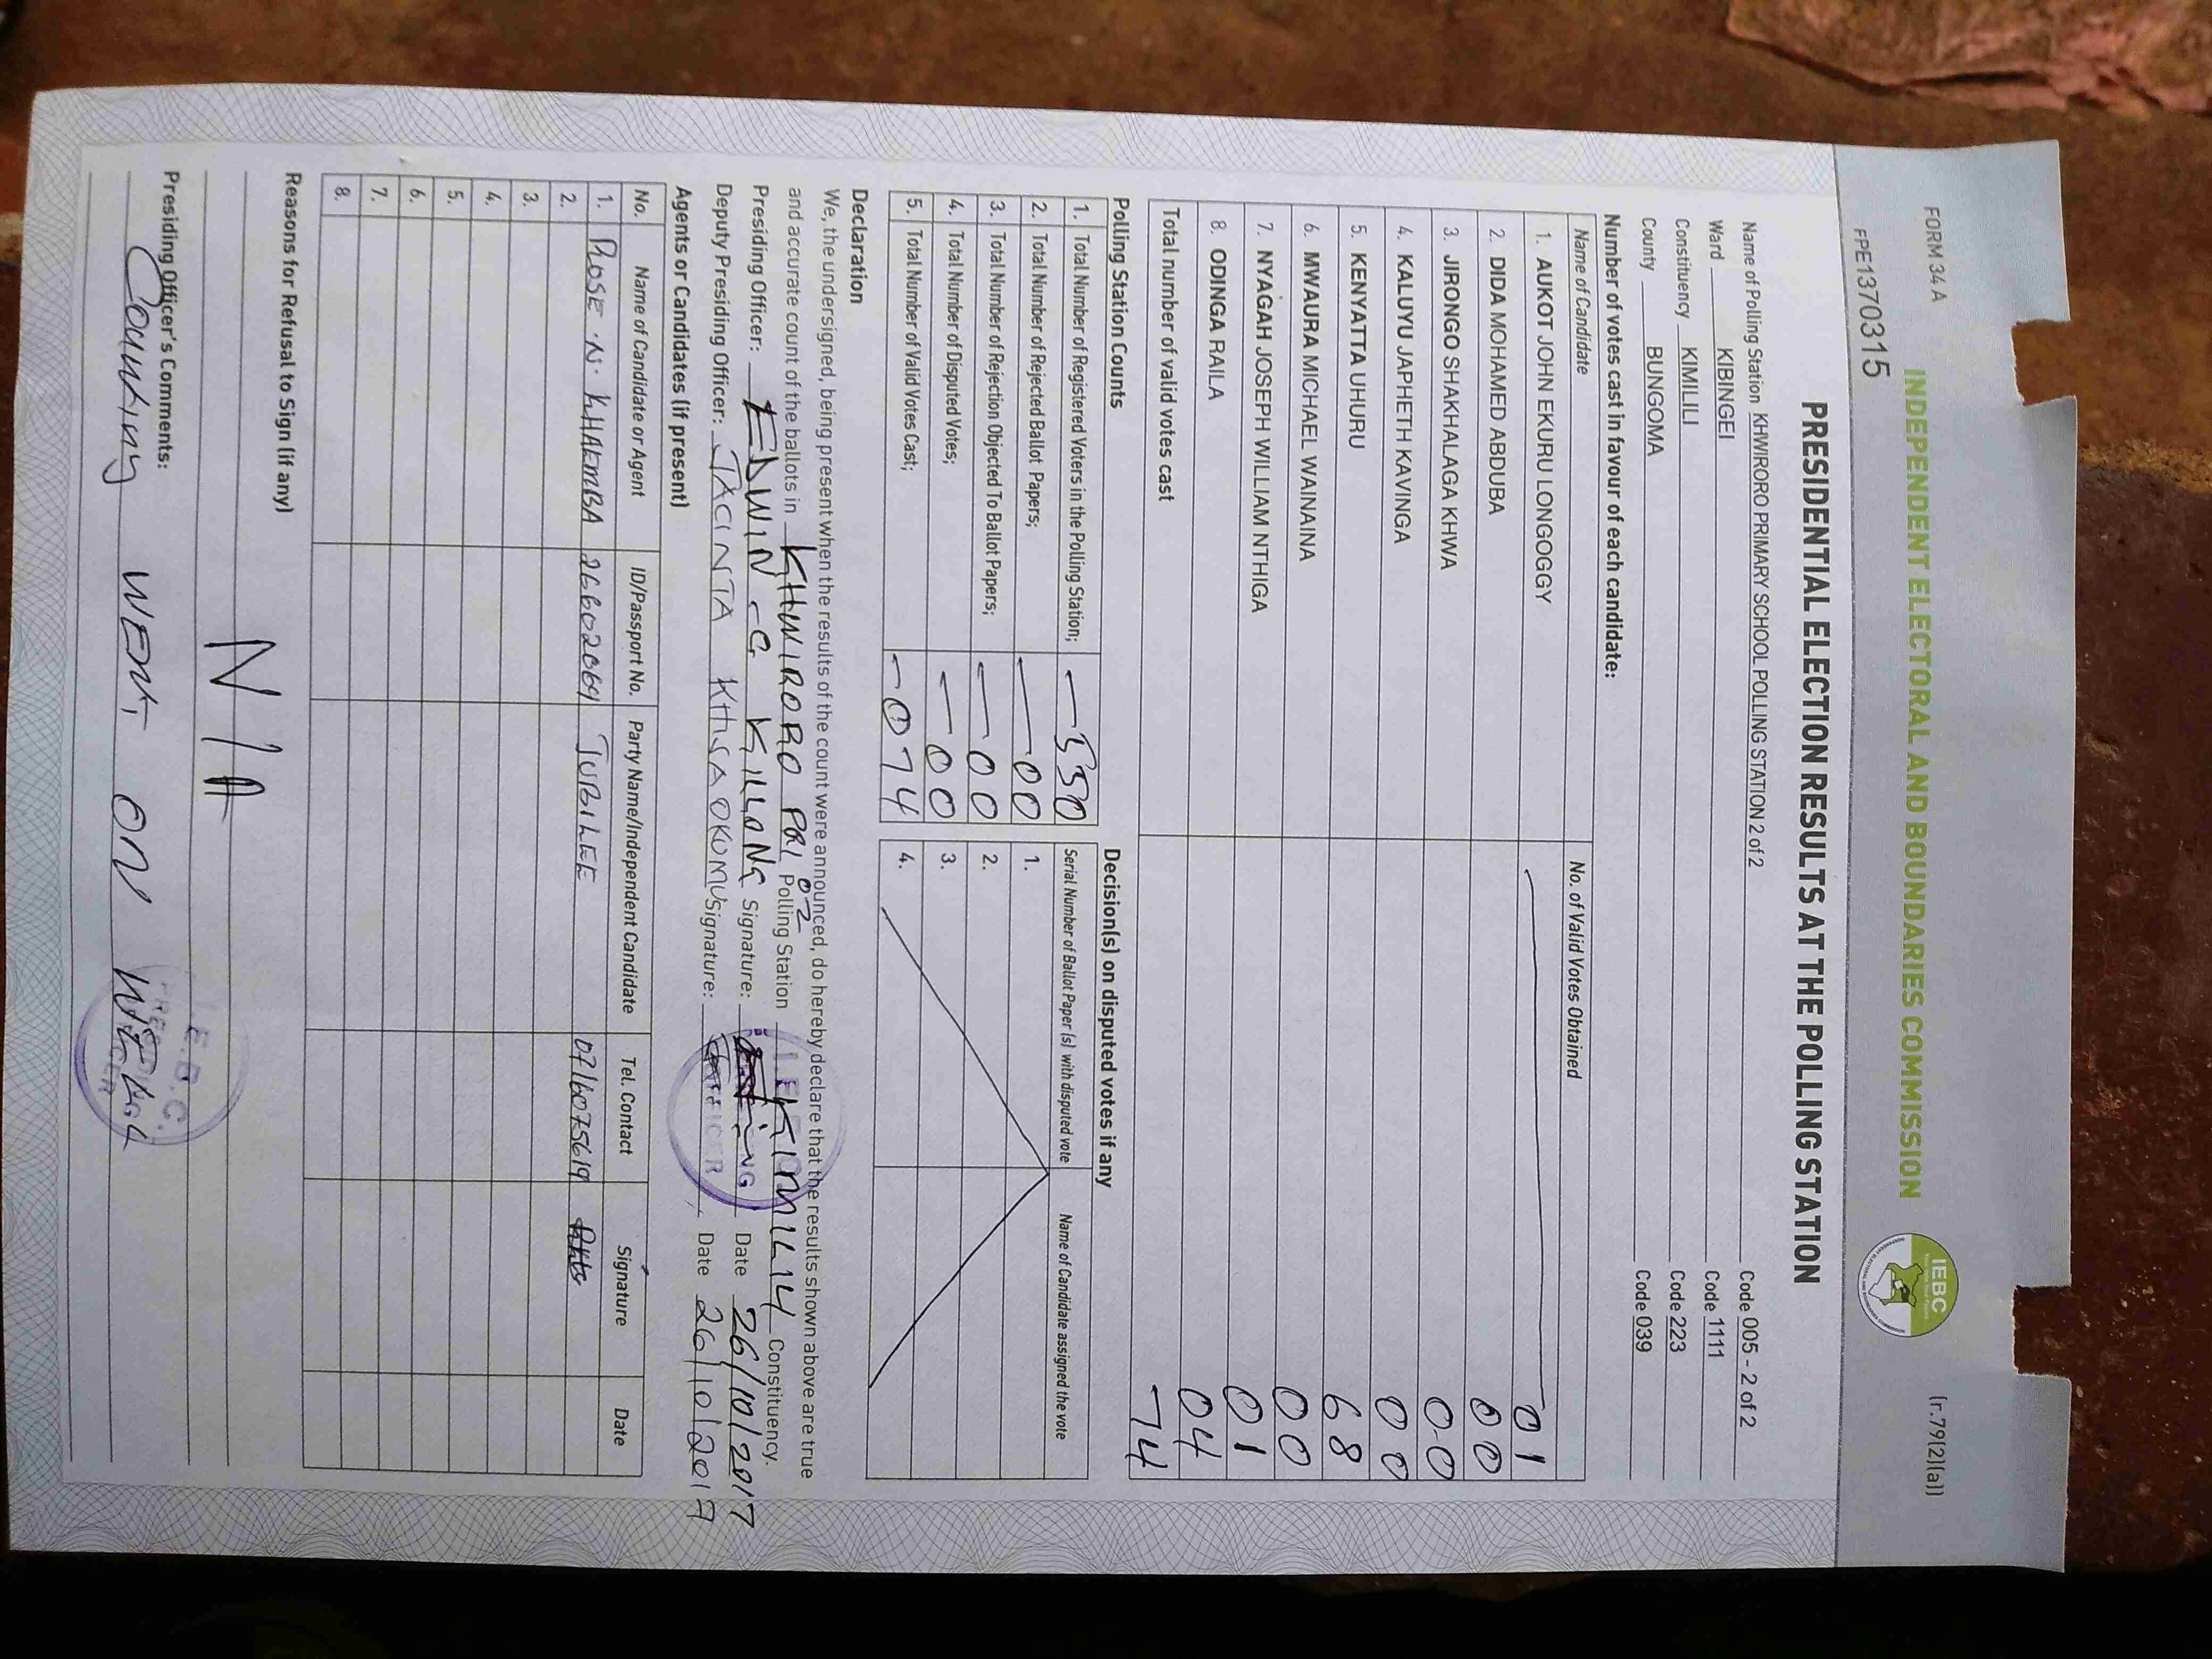 FORM 34 A
(r.79(2)(a))
INDEPENDENT ELECTORAL AND BOUNDARIES COMMISSION
IEBC
FPE1370315
PRESIDENTIAL ELECTION RESULTS AT THE POLLING STATION
Name of Polling Station KHWIRORO PRIMARY SCHOOL POLLING STATION 2 of 2 Code 005 - 2 of 2
Ward KIBINGEI Code 1111
Constituency KIMILILI Code 223
County BUNGOMA Code 039
Number of votes cast in favour of each candidate:
Name of Candidate No. of Valid Votes Obtained
1. AUKOT JOHN EKURU LONGOGGY 01
2. DIDA MOHAMED ABDUBA 00
3. JIRONGO SHAKHALAGA KHWA 00
4. KALUYU JAPHETH KAVINGA 00
5. KENYATTA UHURU 68
6. MWAURA MICHAEL WAINAINA 00
7. NYAGAH JOSEPH WILLIAM NTHIGA 01
8. ODINGA RAILA 04
Total number of valid votes cast 74
Polling Station Counts
1. Total Number of Registered Voters in the Polling Station; 350
2. Total Number of Rejected Ballot Papers; 00
3. Total Number of Rejection Objected To Ballot Papers; 00
4. Total Number of Disputed Votes; 00
5. Total Number of Valid Votes Cast; 074
Decision(s) on disputed votes if any
Serial Number of Ballot Paper (s) with disputed vote Name of Candidate assigned the vote
1.
2.
3.
4.
Declaration
We, the undersigned, being present when the results of the count were announced, do hereby declare that the results shown above are true
and accurate count of the ballots in KHWIRORO PRI 02 Polling Station KIMILILI Constituency.
Presiding Officer: EDWIN C. KILLONG Signature: Date 26/10/2017
Deputy Presiding Officer: JACINTA Signature: Date 26/10/2017
Agents or Candidates (if present)
No. Name of Candidate or Agent ID/Passport No. Party Name/Independent Candidate Tel. Contact Signature Date
1. ROSE .N. KHAEMBA 26602069 JUBILEE 0716075619
2.
3.
4.
5.
6.
7.
8.
Reasons for Refusal to Sign (if any)
N/A
Presiding Officer's Comments:
Counting WENT ON WELL